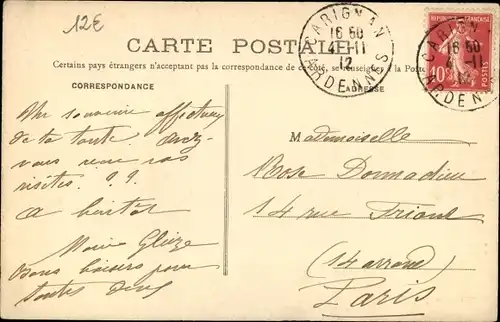 12€
CARTE POSTALE
Certains pays étrangers n'acceptant pas la correspondance de ce côté, se renseigner à la Poste
CORRESPONDANCE
ADRESSE
CARIGNAN
16 50
4-11
12
ARDENNES
RÉPUBLIQUE FRANÇAISE
10c
POSTES
CARIGNAN
16 50
-11
12
ARDENNES
Un souvenir affectueux
de ta tante. Avez-
vous reçu vos
visites ? ?
A bientôt
Marie Glèize
Bons baisers pour
toutes deux
Mademoiselle
Rose Donnadieu
14 rue
(14 arrond)
Paris